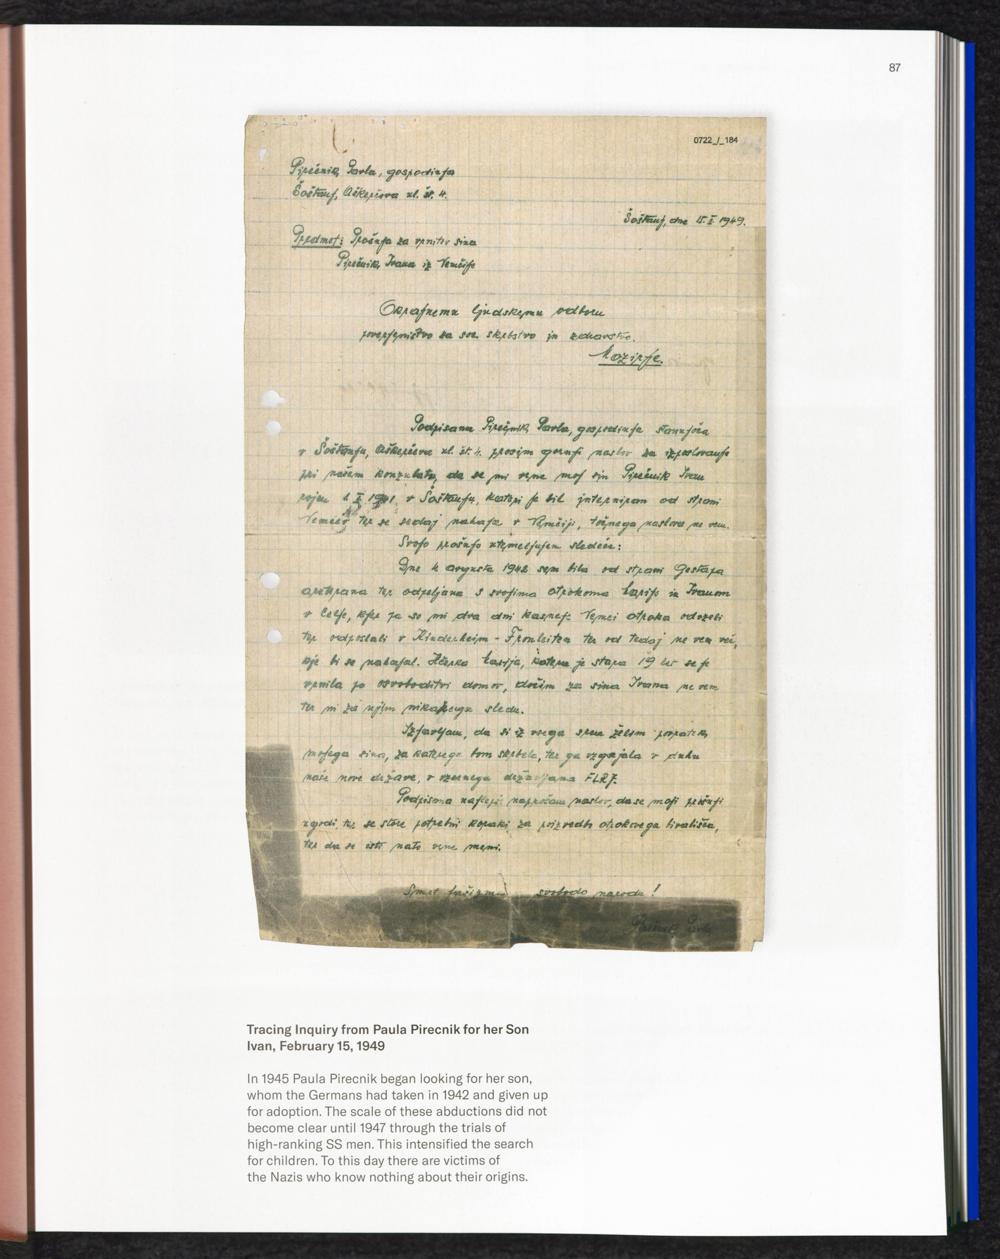 87
0722_/_184
Pirečnik Pavla, gospodinja
Šoštanj, Aškerčeva ul. št. 4.
Šoštanj, dne 15. 1949.
Predmet: Prošnja za vrnitev sina
Pirečnik Ivana iz Nemčije
Okrajnemu ljudskemu odboru
poverjeništvo za soc. skrbstvo in zdravstvo.
Mozirje.
Podpisana Pirečnik Pavla, gospodinja stanujoča
v Šoštanju, Aškerčeva ul. št. 4. prosim gornji naslov za izposlovanje
pri našem konzulatu, da se mi vrne moj sin Pirečnik Ivan
rojen 1941. v Šoštanju, kateri je bil interniran od strani
Nemcev ter se sedaj nahaja v Nemčiji, točnega naslova ne vem.
Svojo prošnjo utemeljujem sledeče:
Dne 4. avgusta 1942 sem bila od strani Gestapa
aretirana ter odpeljana s svojima otrokoma in Ivanom
v Celje, kjer so mi dva dni kasneje Nemci otroka odvzeli
ter odposlali v Kinderheim - Fronleiten ter od tedaj ne vem več,
kje bi se nahajal. Hčerka katera je stara 19 let se je
vrnila po osvoboditvi domov, dočim za sina Ivana ne vem
ter ni za njim nikakega sledu.
Izjavljam, da si iz vsega srca želim povratek
mojega sina, za katerega bom skrbela, ter ga vzgajala v duhu
naše nove države, v vzornega državljana FLRJ.
Podpisana najlepše naprošam naslov, da se moji prošnji
ugodi, ter se store potrebni koraki za poizvedbo otrokovega bivališča,
ter da se isti nato vrne meni.
Smrt fašizmu svoboda narodu!
Pirečnik Pavla
Tracing Inquiry from Paula Pirecnik for her Son
Ivan, February 15, 1949
In 1945 Paula Pirecnik began looking for her son,
whom the Germans had taken in 1942 and given up
for adoption. The scale of these abductions did not
become clear until 1947 through the trials of
high-ranking SS men. This intensified the search
for children. To this day there are victims of
the Nazis who know nothing about their origins.